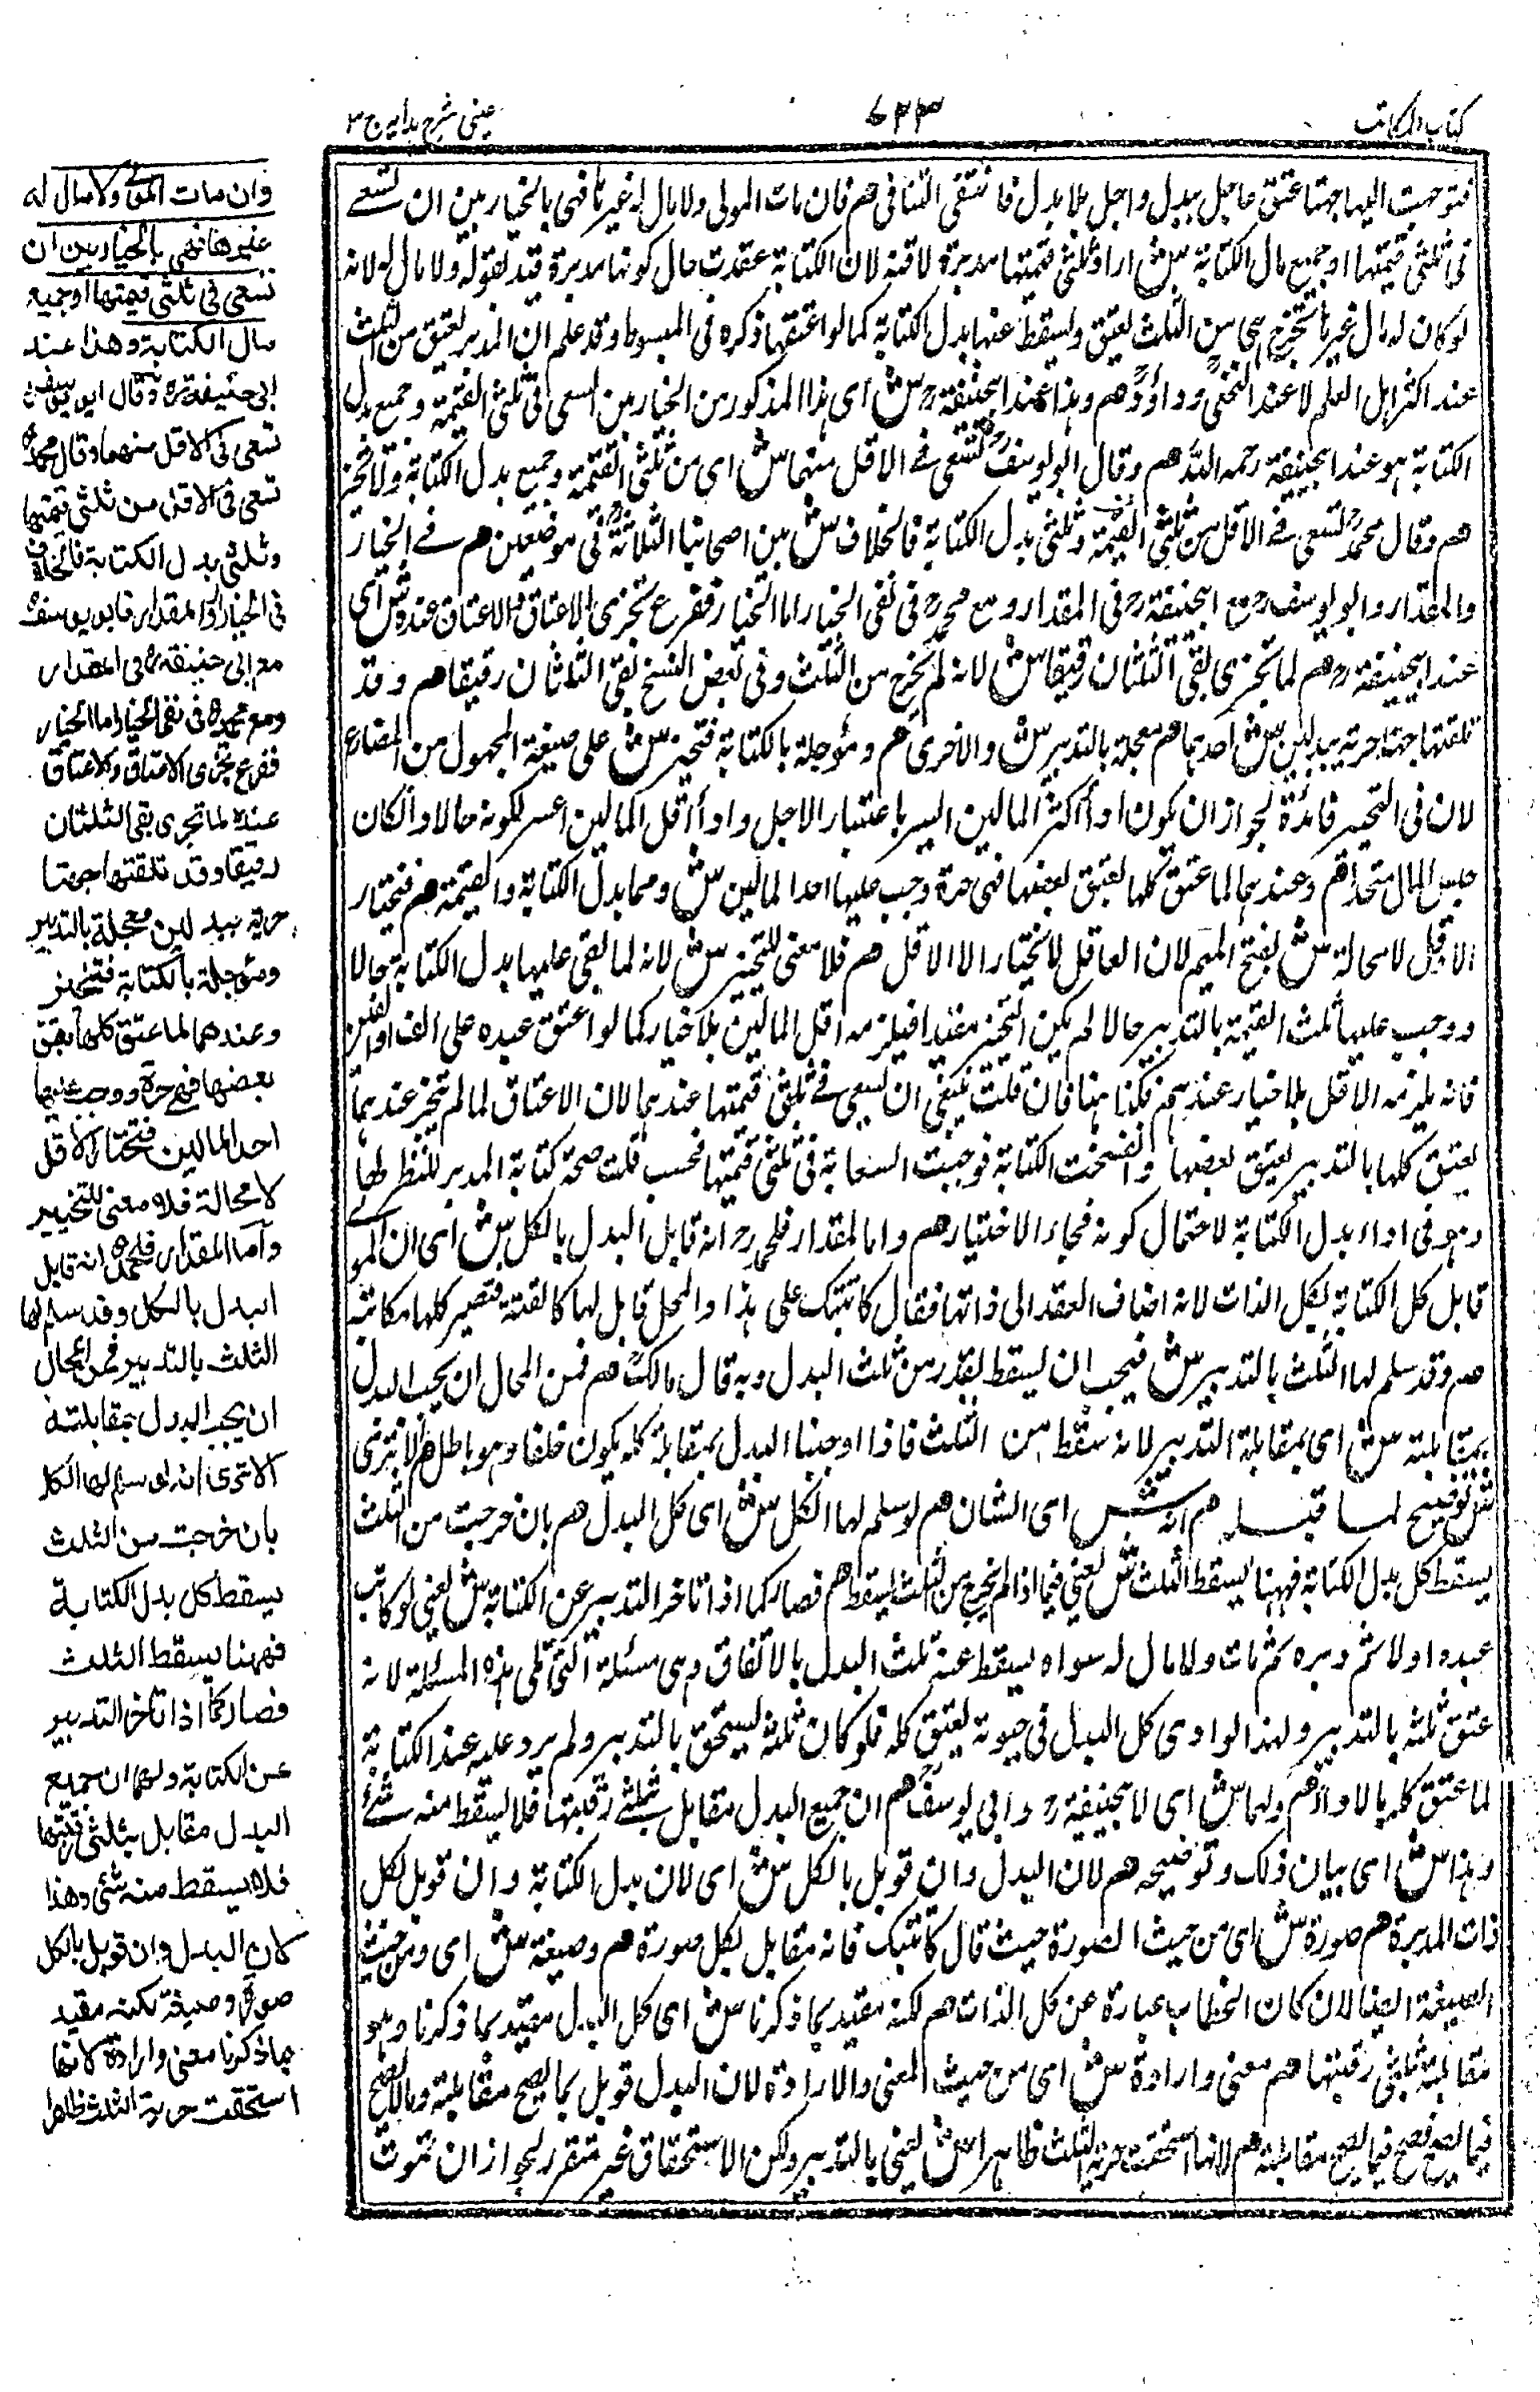 كتاب المكاتب
٦٣٣
عيني شرح هدايه ج ٣
فتوجهت اليها جهتا عتق عاجل ببدل واجل بلا بدل فانتفى التنافي هم فان مات المولى ولا مال له غيرها فهي بالخيار بين ان تسعى
في ثلثي قيمتها او جميع مال الكتابة ش اراد ثلثي قيمتها مدبرة لا قنة لان الكتابة عقدت حال كونها مدبرة قيد بقوله ولا مال له لانه
لو كان له مال غيرها تخرج هي من الثلث تعتق ويسقط عنها بدل الكتابة كما لو اعتقها ذكره في المبسوط وقد علم ان المدبر يعتق من الثلث
عند اكثر اهل العلم لا عند النخعي وداؤد هم وهذا عند ابيحنيفة رح ش اى هذا المذكور من الخيار بين السعي في ثلثي القيمة وجميع بدل
الكتابة هو عند ابيحنيفة رحمه الله هم وقال ابو يوسف تسعى في الاقل منهما ش اى من ثلثي القيمة وجميع بدل الكتابة ولا تخير
هم وقال محمد رح تسعى في الاقل من ثلثي القيمة وثلثي بدل الكتابة فالخلاف ش بين اصحابنا الثلاثة في موضعين هم في الخيار
والمقدار وابو يوسف رح مع ابيحنيفة رح في المقدار ومع محمد رح في نفى الخيار اما الخيار ففرع تجزى الاعتاق والاعتاق عنده ش اى
عند ابيحنيفة رح هم لما تجزى بقى الثلثان رقيقا ش لانه لم تخرج من الثلث وفى بعض النسخ بقى الثلثان رقيقا هم وقد
تلقتها جهتا حرية ببدلين ش احدهما هم معجلة بالتدبير ش والاخرى هم ومؤجلة بالكتابة فتخير ش على صيغة المجهول من المضارع
لان فى التخيير فائدة لجواز ان يكون اداء اكثر المالين ايسر باعتبار الاجل واداء اقل المالين اعسر لكونه حالا وان كان
جنس المال متحدا هم وعندهما لما عتق كلها بعتق بعضها فهى حرة وجب عليها احد المالين ش وهما بدل الكتابة والقيمة هم فتختار
الاقل لا محالة ش بفتح الميم لان العاقل لا يختار الا الاقل هم فلا معنى للتخيير ش لانه لما بقى عليها بدل الكتابة حالا
ووجب عليها ثلث القيمة بالتدبير حالا لم يكن التخيير مفيدا فيلزمه اقل المالين بلا خيار كما لو اعتق عبده على الف او الفين
فانه يلزمه الاقل بلا خيار عندهم فكذا هنا فان قلت ينبغى ان تسعى في ثلثى قيمتها عندهما لان الاعتاق لما لم يتجز عندهما
يعتق كلها بالتدبير بعتق بعضها وانفسخت الكتابة فوجبت السعاية فى ثلثى قيمتها فحسب قلت صحة كتابة المدبر للنظر لها
وهو فى اداء بدل الكتابة لاحتمال كونه فجاء الاختيار هم واما المقدار فلمحمد رح انه قابل البدل بالكل ش اى ان المولى
قابل كل الكتابة بكل الذات لانه اضاف العقد الى ذاتها فقال كاتبتك على هذا والمحل قابل لها كالقنة فتصير كلها مكاتبة
هم وقد سلم لها الثلث بالتدبير ش فيجب ان يسقط بقدره من ثلث البدل وبه قال مالك هم فمن المحال ان يجب البدل
بمقابلته ش اى بمقابلة التدبير لانه سقط من الثلث فاذا اوجبنا البدل بمقابلة كله يكون خلفا وهو باطل هم الا ترى
ش توضيح لما قبله هم انه ش اى الشان هم لو سلم لها الكل ش اى كل البدل هم بان خرجت من الثلث
يسقط كل بدل الكتابة فههنا يسقط الثلث ش يعنى فيما اذا لم تخرج من الثلث يسقط هم فصار كما اذا تاخر التدبير عن الكتابة ش يعنى لو كاتب
عبده اولا ثم دبره ثم مات ولا مال له سواه يسقط عنه ثلث البدل بالاتفاق وهى مسئلة التى تلى هذه المسئلة لانه
عتق ثلثه بالتدبير ولهذا لو ادى كل البدل فى حيوته يعتق كله فلو كان ثلثه يستحق بالتدبير ولم يرد عليه عند الكتابة
لما عتق كله بالاداء هم ولهما ش اى لابيحنيفة رح وابى يوسف هم ان جميع البدل مقابل بثلثى رقبتها فلا يسقط منه شئ
وهذا ش اى بيان ذلك وتوضيحه هم لان البدل وان قوبل بالكل ش اى لان بدل الكتابة وان قوبل لكل
ذات المدبرة هم صورة ش اى من حيث الصورة حيث قال كاتبتك فانه مقابل بكل صورة هم وصيغة ش اى ومن حيث
الصيغة ايضا لان كان الخطاب عبارة عن كل الذات هم لكنه مقيد بما ذكرنا ش اى كل البدل مقيد بما ذكرنا وهو
مقابلته بثلثى رقبتها هم معنى وارادة ش اى من حيث المعنى والارادة لان البدل قوبل بما يصح مقابلته وبما لا يصح
فيما يصح فصح فيما يصح مقابلته هم لانها استحقت حرية الثلث ظاهرا ش يعنى بالتدبير ولكن الاستحقاق غير متقرر لجواز ان تموت
وان مات المولى ولا مال له
غيرها فهي بالخيار بين ان
تسعى فى ثلثى قيمتها او جميع
مال الكتابة وهذا عند
ابى حنيفة رح وقال ابو يوسف رح
تسعى فى الاقل منهما وقال محمد رح
تسعى فى الاقل من ثلثى قيمتها
وثلثى بدل الكتابة فالخلاف
فى الخيار والمقدار فابو يوسف رح
مع ابى حنيفة رح فى المقدار
ومع محمد رح فى نفى الخيار اما الخيار
ففرع تجزى الاعتاق والاعتاق
عنده لما تجزى بقى الثلثان
رقيقا وقد تلقتها جهتا
حرية ببدلين معجلة بالتدبير
ومؤجلة بالكتابة فتخير
وعندهما لما عتق كلها بعتق
بعضها فهى حرة ووجب عليها
احد المالين فتختار الاقل
لا محالة فلا معنى للتخيير
واما المقدار فلمحمد رح انه قابل
البدل بالكل وقد سلم لها
الثلث بالتدبير فمن المحال
ان يجب البدل بمقابلته
الا ترى انه لو سلم لها الكل
بان خرجت من الثلث
يسقط كل بدل الكتابة
فههنا يسقط الثلث
فصار كما اذا تاخر التدبير
عن الكتابة ولهما ان جميع
البدل مقابل بثلثى رقبتها
فلا يسقط منه شئ وهذا
لان البدل وان قوبل بالكل
صورة وصيغة لكنه مقيد
بما ذكرنا معنى وارادة لانها
استحقت حرية الثلث ظاهرا